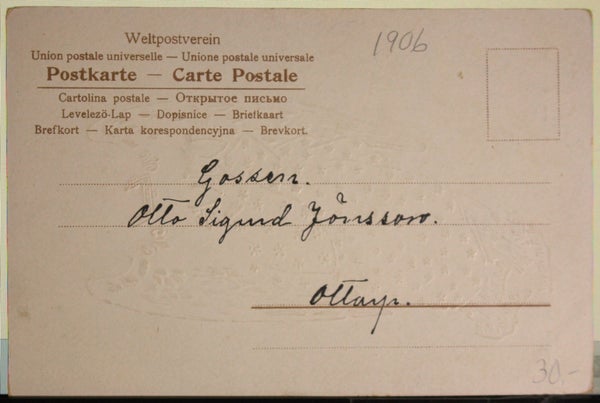 Weltpostverein
1906
Union postale universelle — Unione postale universale
Postkarte — Carte Postale
Cartolina postale — Открытое письмо
Levelezö-Lap — Dopisnice — Briefkaart
Brefkort — Karta korespondencyjna — Brevkort.
Gossen.
Otto Sigurd Jönsson.
30,-